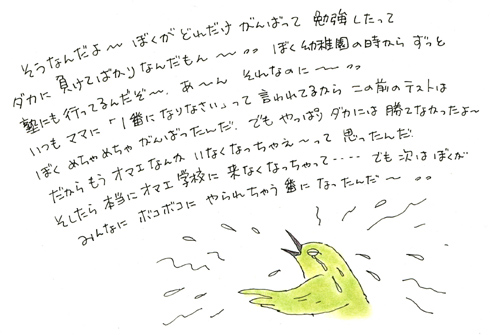 そうなんだよ〜 ぼくがどれだけ がんばって 勉強したって
ダカに 負けてばかりなんだもん 〜〜 。。 ぼく幼稚園の時から ずっと
塾にも行ってるんだぞ〜、あ〜ん それなのに〜〜 。。
いつも ママに「1番になりなさい」って 言われてるから この前のテストは
ぼく めちゃめちゃ がんばったんだ、でも やっぱり ダカには 勝てなかったよ〜
だからもう オマエなんか いなくなっちゃえ〜って 思ったんだ、
そしたら 本当に オマエ 学校に 来なくなっちゃって・・・・ でも 次は ぼくが
みんなに ボコボコに やられちゃう 番に なったんだ〜 。。